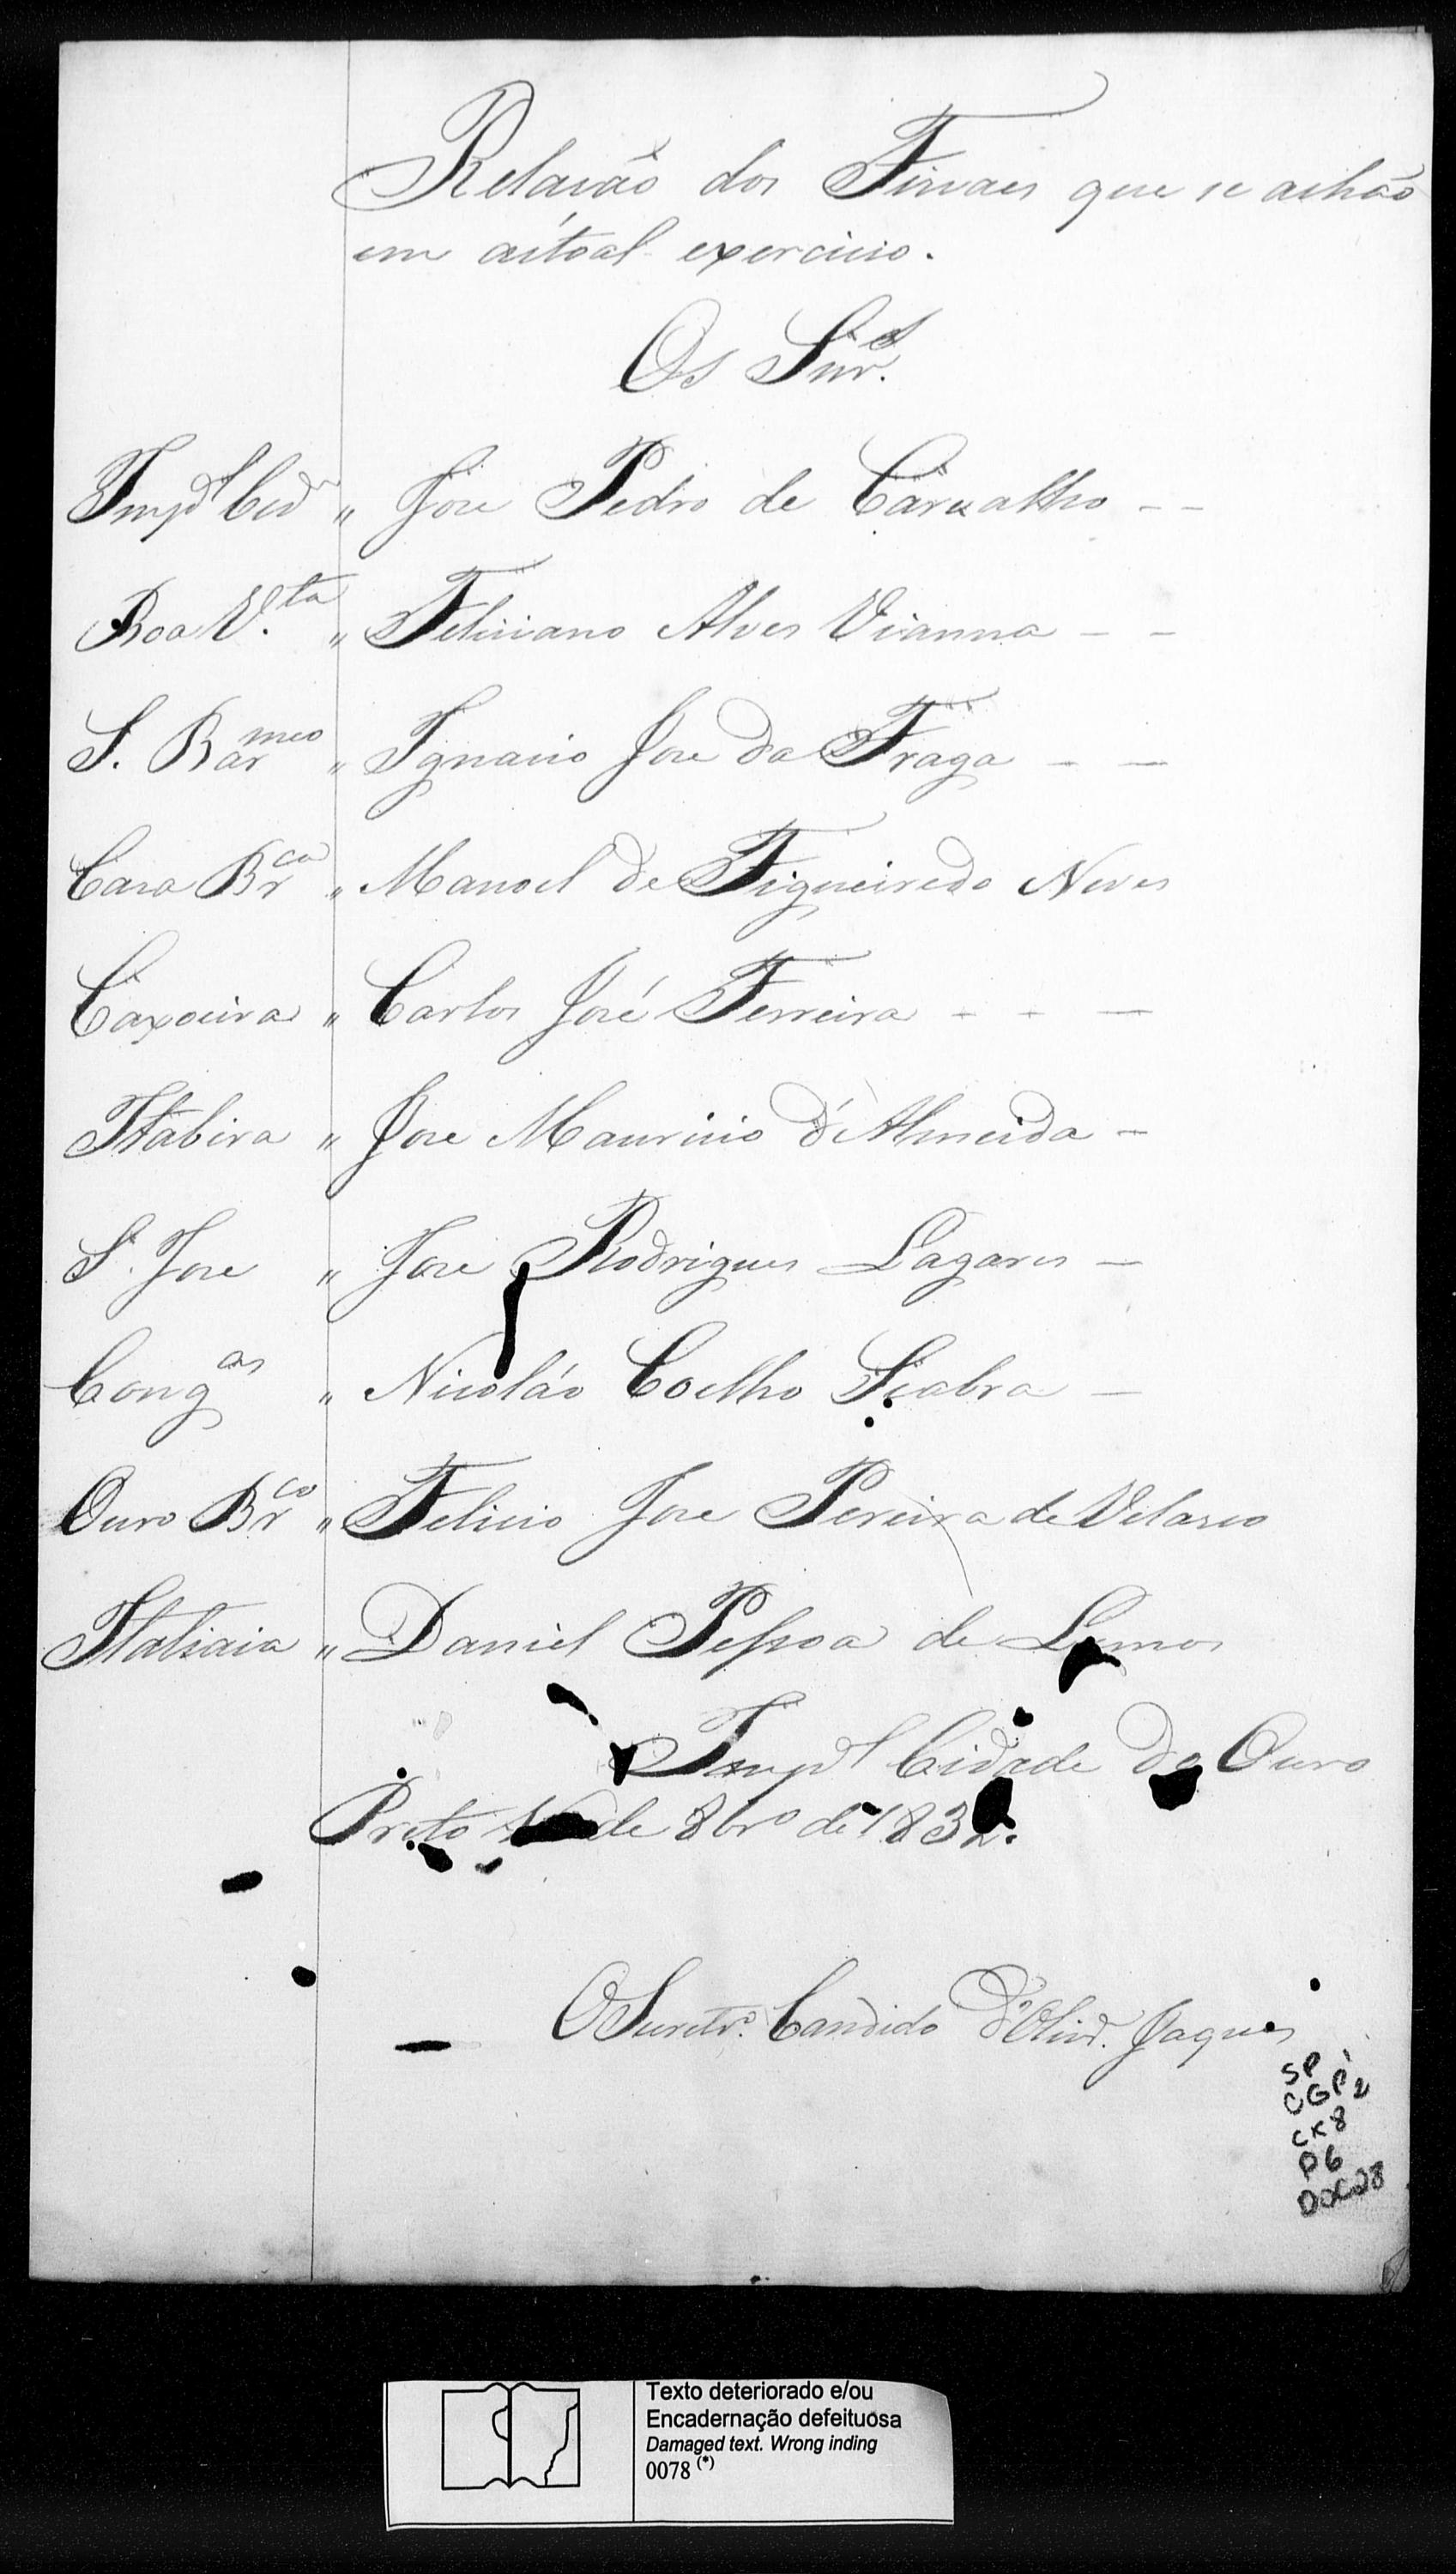 Relação dos Fiscaes que se achão
em actoal exercicio.
Os Snr.es
Imp.l Cid.e " Jose Pedro de Carvalho - -
Boa V.ta " Feliciano Alves Vianna - -
S. Barmeo " Ignacio Jose da Fraga - -
Caza Brca " Manoel de Figueiredo Neves
Caxoeira " Carlos José Ferreira - - -
Itabira " Jose Mauricio d'Almeida -
S. Jose " Jose Rodrigues Lagares -
Congas " Nicoláo Coelho Seabra -
Ouro Brco " Felicio Jose Pereira de Velasco
Itatiaia " Daniel Pessoa de Lemos
Imp.l Cidade do Ouro
Preto de 8br.o de 1832.
O Secretr.o Candido d'Oliv.ra Jaques
SP
CGP2
CX8
P6
DOC28
Texto deteriorado e/ou
Encadernação defeituosa
Damaged text. Wrong inding
0078 (*)